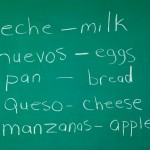 eche – milk
nuevos – eggs
pan – bread
queso – cheese
manzanas – apple